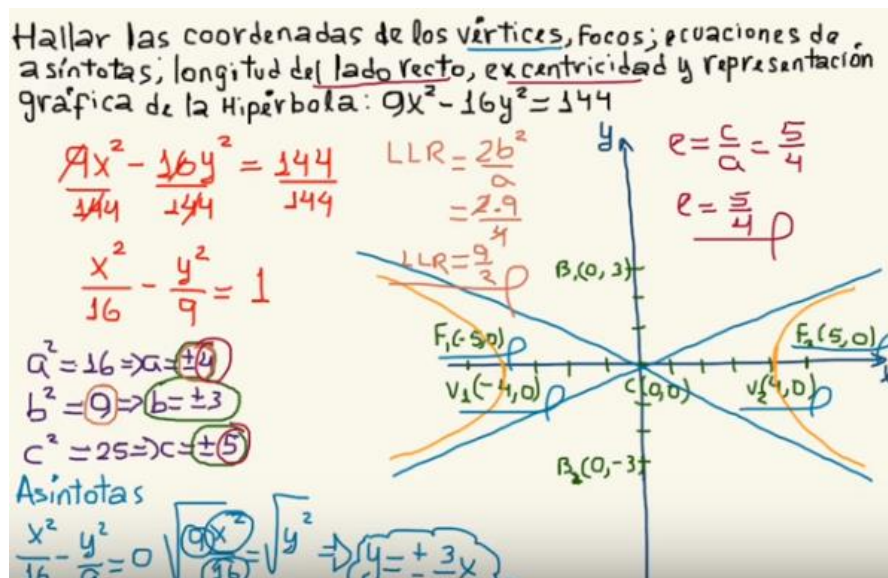 Hallar las coordenadas de los vértices, Focos; ecuaciones de
asíntotas; longitud del lado recto, excentricidad y representación
gráfica de la Hipérbola: 9x² - 16y² = 144
9x²/144 - 16y²/144 = 144/144
x²/16 - y²/9 = 1
a² = 16 => a = ±4
b² = 9 => b = ±3
c² = 25 => c = ±5
Asíntotas
x²/16 - y²/9 = 0 √(9x²/16) = √y² => y = ± 3x
LLR = 2b²/a
= 2.9/4
LLR = 9/2
y
e = c/a = 5/4
e = 5/4
B₁(0, 3)
F₁(-5,0)
F₂(5,0)
V₁(-4,0)
C(0,0)
V₂(4,0)
B₂(0,-3)